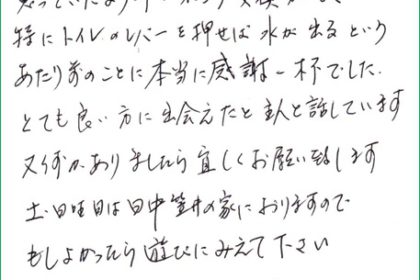 特にトイレのレバーを押せば水が出るという
あたり前のことに本当に感謝一杯でした.
とても良い方に出会えたと主人と話しています
又何かありましたら宜しくお願い致します
土・日曜日は田中 の家におりますので
もしよかったら遊びにみえて下さい